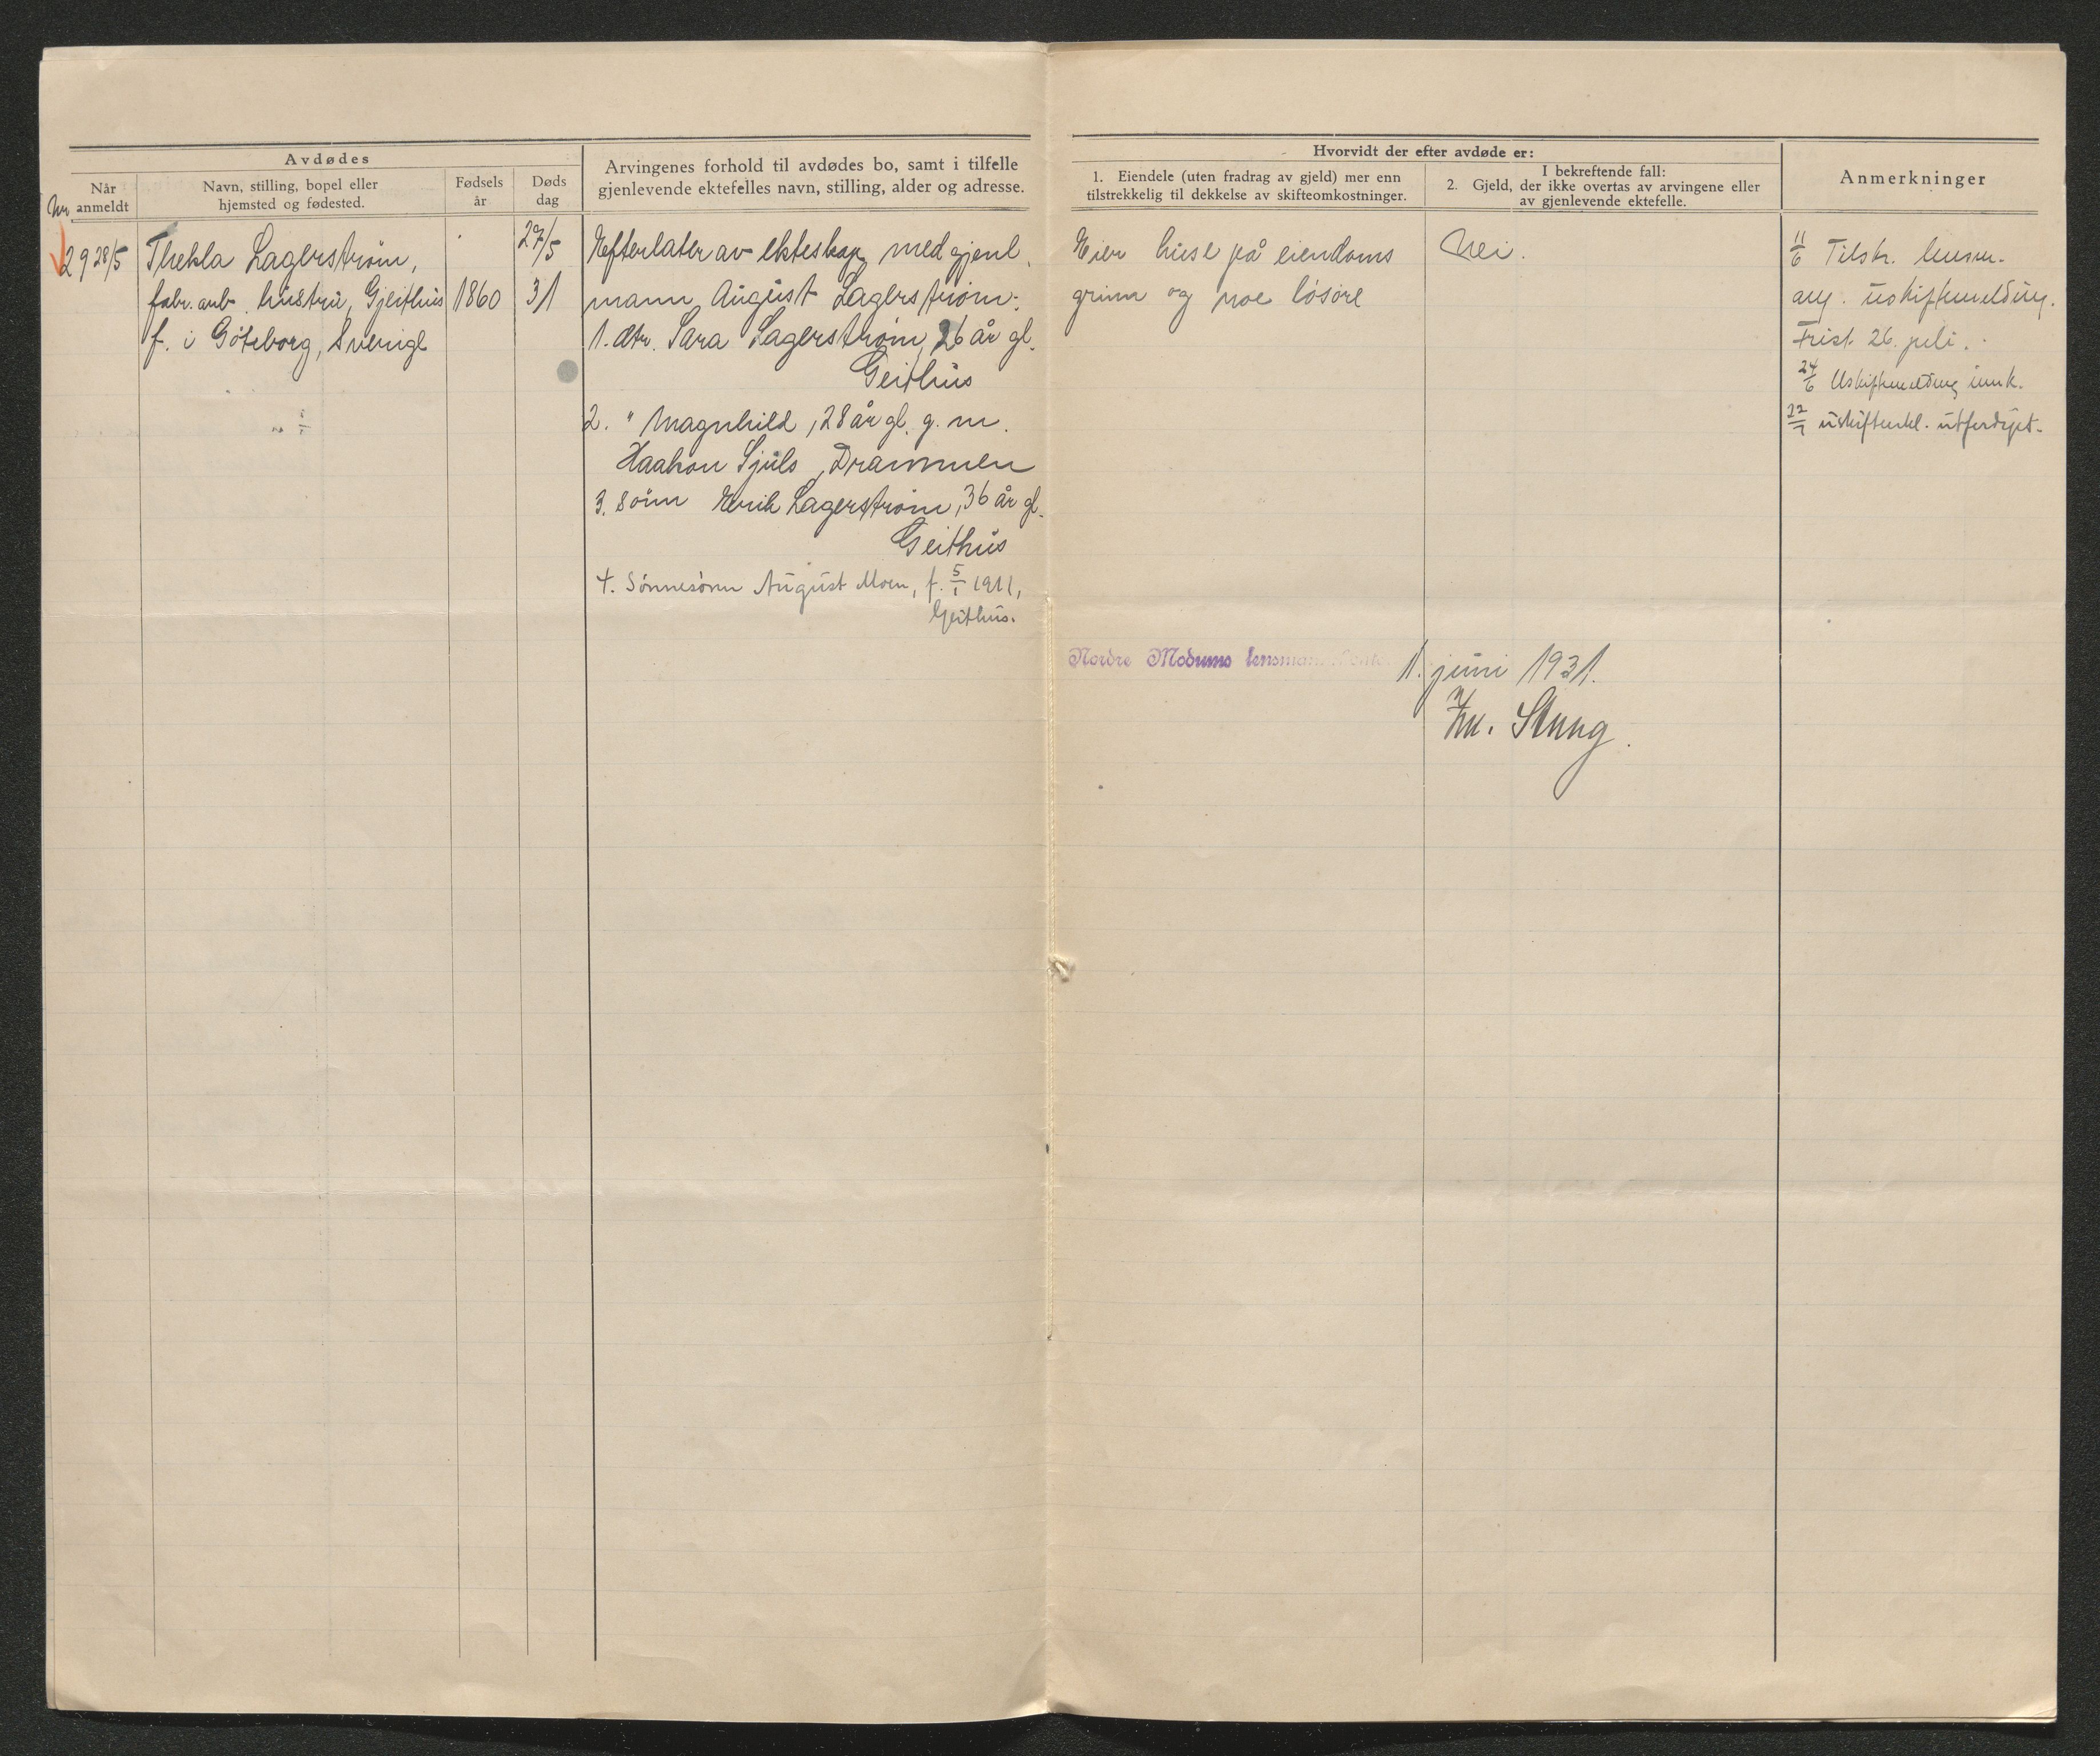 Avdødes
Når anmeldt
Nr.
Navn, stilling, bopel eller
hjemsted og fødested.
Fødsels
år
Døds
dag
Arvingenes forhold til avdødes bo, samt i tilfelle
gjenlevende ektefelles navn, stilling, alder og adresse.
Hvorvidt der efter avdøde er:
1. Eiendele (uten fradrag av gjeld) mer enn
tilstrekkelig til dekkelse av skifteomkostninger.
I bekreftende fall:
2. Gjeld, der ikke overtas av arvingene eller
av gjenlevende ektefelle.
Anmerkninger
29 28/5
Thekla Lagerstrøm,
fabr.arb. hustru, Gjeithus
f. i Göteborg, Sverige
1860
27/5
31
Efterlater av ekteskap med gjenl.
mann August Lagerstrøm:
1. dtr. Sara Lagerstrøm, 26 år gl.
Geithus
2. " Magnhild, 28 år gl. g. m.
Haakon Sjuls, Drammen
3. sønn Erik Lagerstrøm, 36 år gl.
Geithus
4. Sønnesønn August Moen, f. 5/1 1911,
Geithus.
Eier huse på eiendoms
grunn og noe løsøre
Nei.
11/6 Tilskr. lensm.
ang. uskiftemelding.
Frist 26. juli.
24/6 Uskiftemelding innk.
22/7 uskifteerkl. utferdiget.
Nordre Modums lensmannskontor
1. juni 1931.